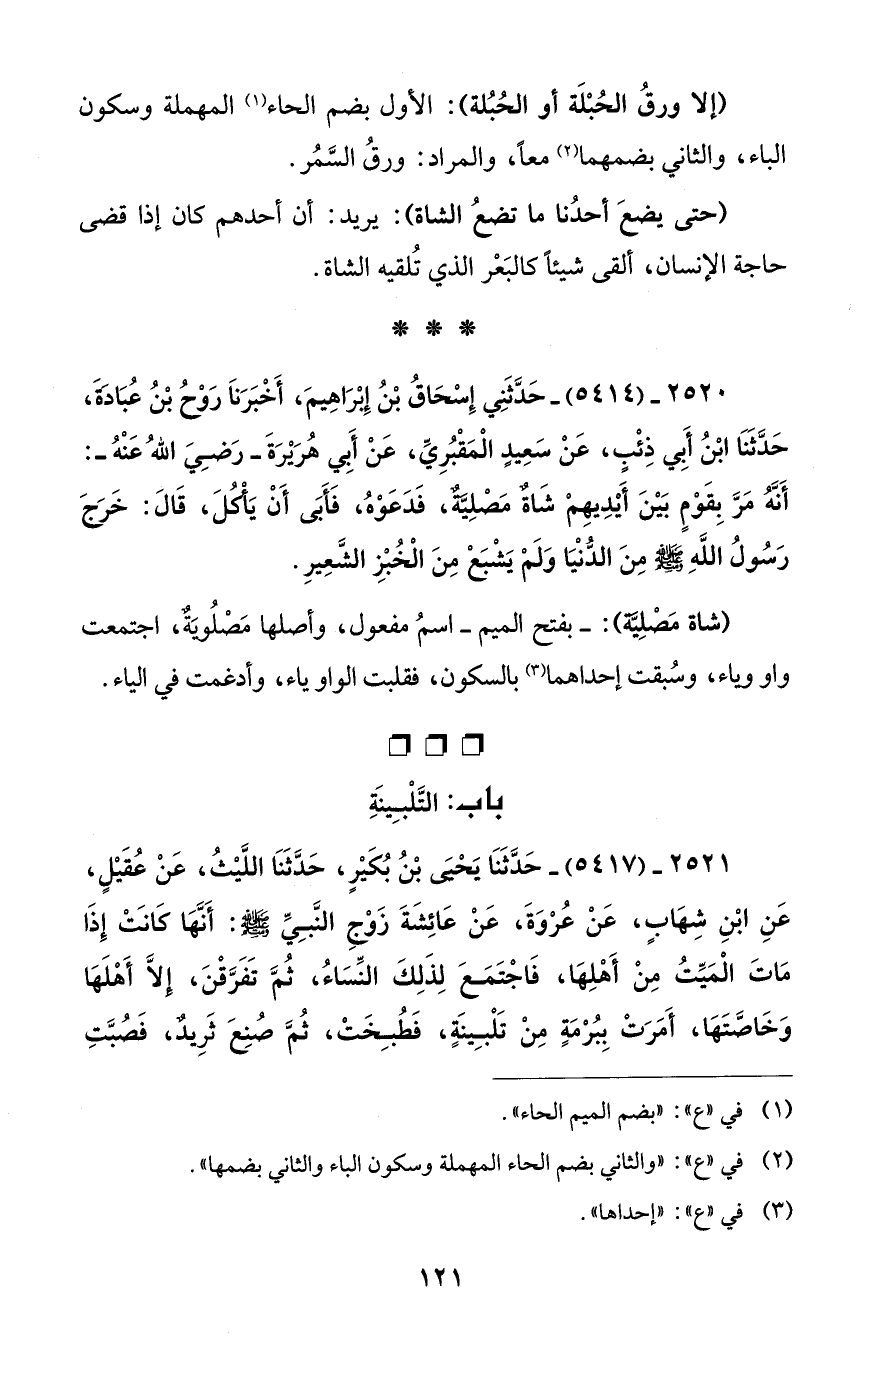 (إلا ورقُ الحُبْلَة أو الحُبُلة): الأول بضم الحاء(١) المهملة وسكون
الباء، والثاني بضمهما(٢) معاً، والمراد: ورقُ السَّمُر.
(حتى يضعَ أحدُنا ما تضعُ الشاة): يريد: أن أحدهم كان إذا قضى
حاجة الإنسان، ألقى شيئاً كالبَعْر الذي تُلقيه الشاة.
* * *
٢٥٢٠ ـ (٥٤١٤) ـ حَدَّثَنِي إِسْحَاقُ بْنُ إِبْرَاهِيمَ، أَخْبَرَنَا رَوْحُ بْنُ عُبَادَةَ،
حَدَّثَنَا ابْنُ أَبِي ذِئْبٍ، عَنْ سَعِيدٍ الْمَقْبُرِيِّ، عَنْ أَبِي هُرَيْرَةَ ـ رَضِيَ اللهُ عَنْهُ ـ:
أَنَّهُ مَرَّ بِقَوْمٍ بَيْنَ أَيْدِيهِمْ شَاةٌ مَصْلِيَّةٌ، فَدَعَوْهُ، فَأَبَى أَنْ يَأْكُلَ، قَالَ: خَرَجَ
رَسُولُ اللَّهِ ﷺ مِنَ الدُّنْيَا وَلَمْ يَشْبَعْ مِنَ الْخُبْزِ الشَّعِيرِ.
(شاة مَصْلِيَّة): ـ بفتح الميم ـ اسمُ مفعول، وأصلها مَصْلُويَةٌ، اجتمعت
واو وياء، وسُبقت إحداهما(٣) بالسكون، فقلبت الواو ياء، وأدغمت في الياء.
❒ ❒ ❒
باب: التَّلْبِينَةِ
٢٥٢١ ـ (٥٤١٧) ـ حَدَّثَنَا يَحْيَى بْنُ بُكَيْرٍ، حَدَّثَنَا اللَّيْثُ، عَنْ عُقَيْلٍ،
عَنِ ابْنِ شِهَابٍ، عَنْ عُرْوَةَ، عَنْ عَائِشَةَ زَوْجِ النَّبِيِّ ﷺ: أَنَّهَا كَانَتْ إِذَا
مَاتَ الْمَيِّتُ مِنْ أَهْلِهَا، فَاجْتَمَعَ لِذَلِكَ النِّسَاءُ، ثُمَّ تَفَرَّقْنَ، إِلاَّ أَهْلَهَا
وَخَاصَّتَهَا، أَمَرَتْ بِبُرْمَةٍ مِنْ تَلْبِينَةٍ، فَطُبِخَتْ، ثُمَّ صُنِعَ ثَرِيدٌ، فَصُبَّتِ
(١) في «ع»: «بضم الميم الحاء».
(٢) في «ع»: «والثاني بضم الحاء المهملة وسكون الباء والثاني بضمها».
(٣) في «ع»: «إحداها».
١٢١